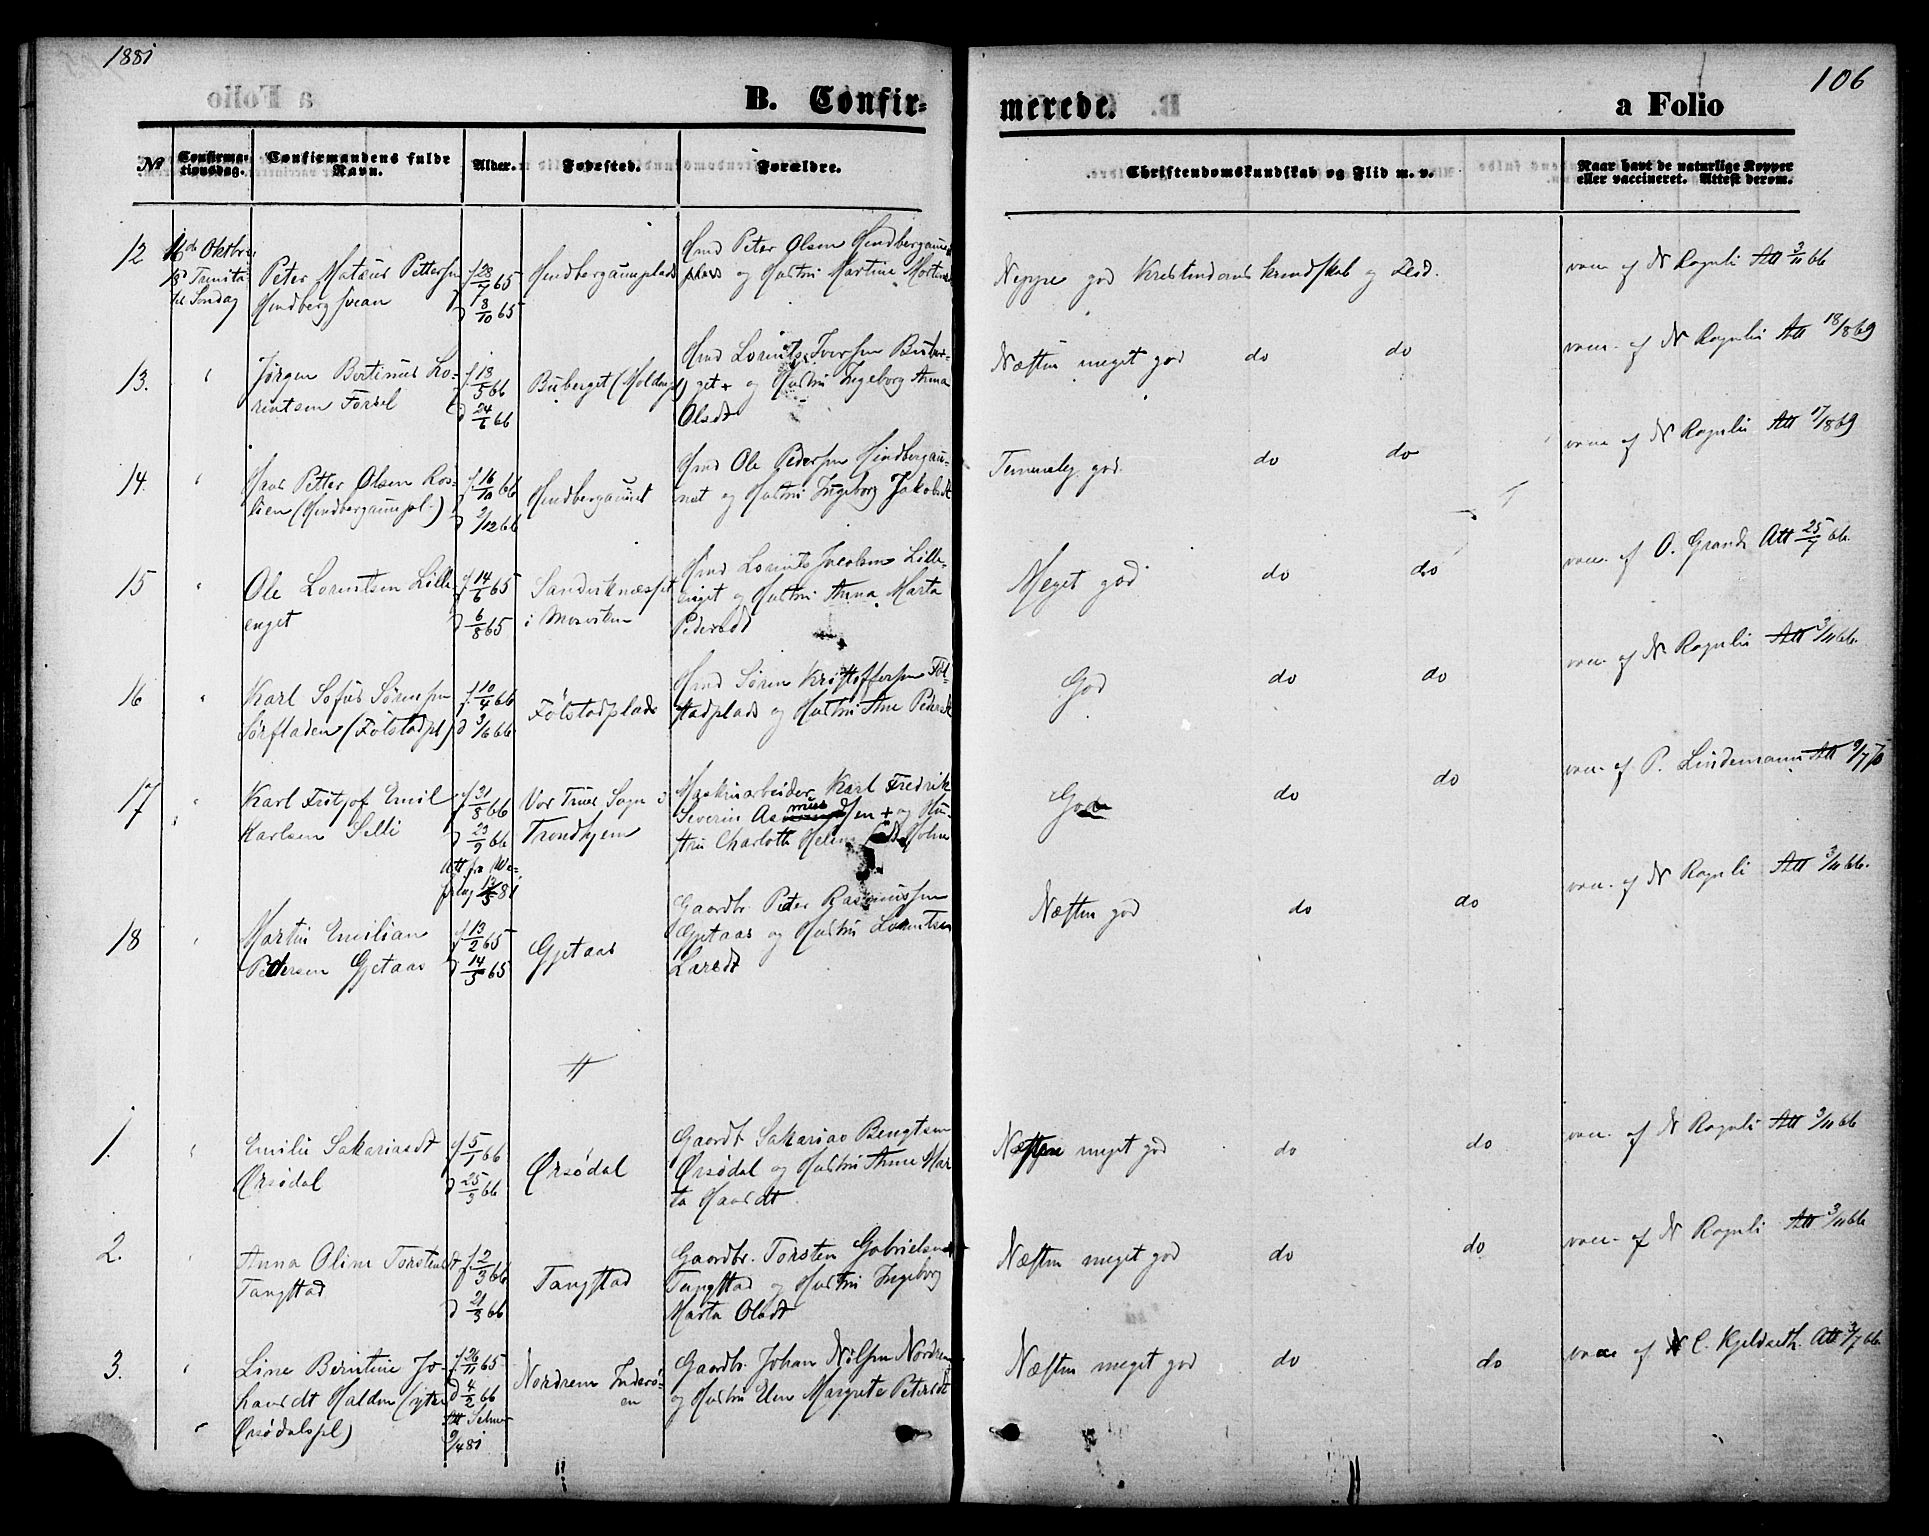 1881
106
B. Confirmerede.
a Folio
No
Confirmationsdag.
Confirmandens fulde Navn.
Alder.
Fødested.
Forældre.
Christendomskundskab og Flid m. v.
Naar havt de naturlige Kopper eller vaccineret. Attest derom.
12
16de Oktober
18 Trinita
tis Søndag
Peter Mataus Pettersen
Hindberg svean
f 28/7 65
d 8/10 65
Hindbergaunplads
Hmd Peter Olsen Hindbergauns
plads og Hustru Martine Martins
Neppe god Kristendomskundskab og Flid.
vacc. af N Rognli Att 3/11 66
13.
"
Jørgen Bertinus Lo-
rentsen Forsel
f 13/5 66
d 24/6 66
Buberget (Moldenpl)
Hmd Lorents Iversen Buber-
get + og Hustru Ingeborg Anna
Olsdt
Næsten meget god do do
vacc. af N Rognli Att 18/8 69
14.
"
Hans Petter Olsen Ros-
lien (Hindbergaunpl.)
f. 16/10 66
d 2/12 66
Hindbergaunet
Hmd Ole Pedersen Hindbergau-
net og Hustru Ingeborg Jakobsdt
Temmelig god. do do
vacc af N Rognli Att 17/8 69
15
"
Ole Lorentsen Lille-
enget
f 14/6 65
d 6/8 65
Sandviknesset
i Mosviken
Hmd Lorents Jacobsen Lille-
enget og Hustru Anna Marta
Pedersdt
Meget god do do
vacc. af O. Grande Att 25/7 66.
16
"
Karl Sofus Sørensen
Sørfladen (Følstadpl)
f. 10/4 66
d 3/6 66.
Følstadplads
Hmd Søren Kristoffersen Føl-
stadplads og Hustru Ane Pedersdt
God do do
vacc. af N. Rognli Att 3/11 66.
17
"
Karl Fritjof Emil
Karlsen Selli
f 31/8 66
d 23/9 66
Vor Frues Sogn i
Trondhjem
Maskinarbeider Karl Fredrik
Severin Asmussen + og Hu-
stru Charlotte Helene Holm
God do do
vacc. af P. Lindemann Att 9/7 70
18
"
Martin Emilian
Pettersen Gjetaas
f 13/2 65
d 14/5 65
Gjetaas
Gaardbr. Peter Rasmussen
Gjetaas og Hustru Lorentse
Larsdt
Næsten god do do
vacc. af N Rognli Att 3/11 66.
1.
"
Emilie Sakariasdt
Ørsødal
f 5/1 66
d 25/3 66
Ørsødal
Gaardb. Sakarias Bengtsen
Ørsødal og Hustru Anne Mar-
ta Hansdt.
Næsten meget god do do
vacc. af N Rognli Att 3/11 66
2.
"
Anna Oline Torstensdt
Tangstad
f. 2/3 66
d 21/5 66
Tangstad
Gaardbr. Torsten Gabrielsen
Tangstad og Hustru Ingeborg
Marta Olsdt
Næsten meget god do do
vacc. af N Rognli Att 3/11 66.
3.
"
Line Berntine Jo-
hansdt Halden (ytre
Ørsødalspl)
f. 26/11 65
d 4/2 66
9/4 81
Nordrem Inderø-
en
Gaardbr. Johan Nilsen Nordrem
og Hustru Elen Margrete Petersdt
Næsten meget god do do
vacc af C. Kjeldseth. Att 3/7 66.